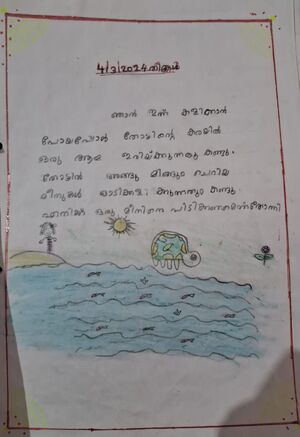 4/3/2024 തിങ്കൾ
ഞാൻ ഇന്ന് കളിക്കാൻ
പോയപ്പോൾ തോട്ടിന്റെ കരയിൽ
ഒരു ആമ ഇരിയ്ക്കുന്നതു കണ്ടു.
തോട്ടിൽ അങ്ങും മിങ്ങും ചെറിയ
മീനുകൾ ഓടിക്കളിക്കുന്നതും കണ്ടു.
എനിക്ക് ഒരു മീനിനെ പിടിക്കണമെന്ന്തോന്നി